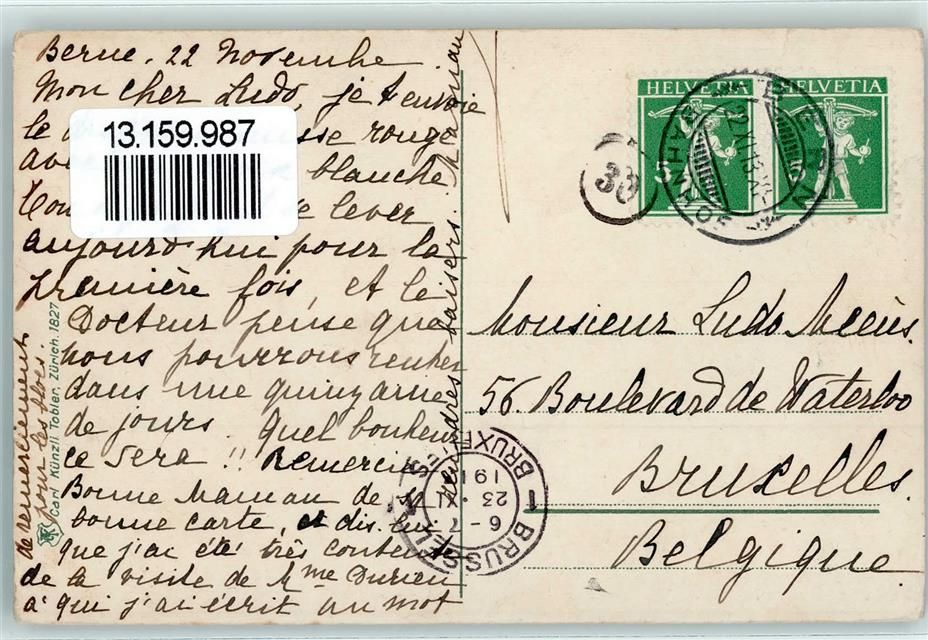 Berne. 22 Novembre.
Mon cher Ludo, je t'envoie
le rouge
blanche
lever
aujourd'hui pour la
première fois, et le
Docteur pense que
nous pourrons rentrer
dans une quinzaine
de jours. Quel bonheur
ce sera !! Remercie
Bonne Maman de sa
bonne carte, et dis-lui
que j'ai été très contente
de la visite de Mme Durieu
à qui j'ai écrit un mot
de remerciement
pour les
tendres baisers. Maman
Carl Künzli. Tobler, Zürich. 1827
13.159.987
HELVETIA HELVETIA
5 5
33
BRUXELLES
BRUSSEL
6-7
23.XI
191
1
Monsieur Ludo Meeùs.
56 Boulevard de Waterloo
Bruxelles.
Belgique.